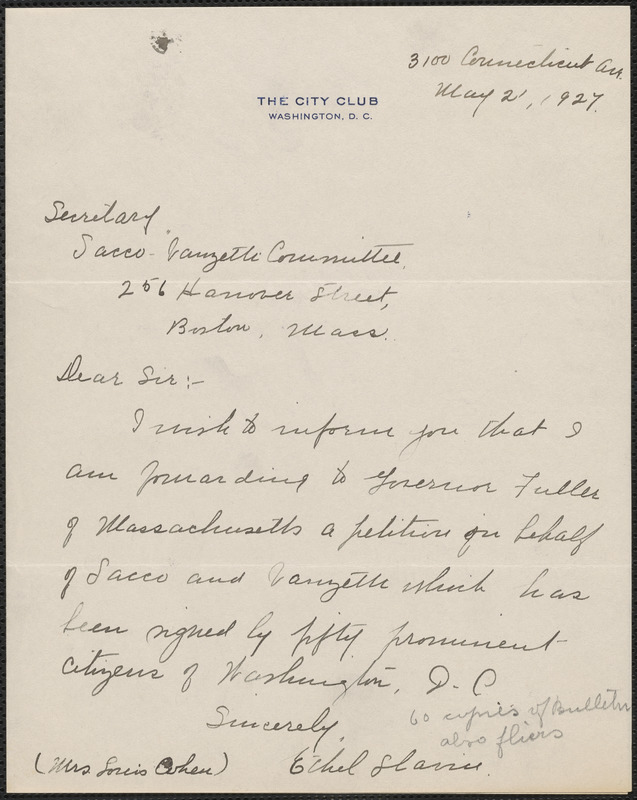 3100 Connecticut Ave.
May 21, 1927.
THE CITY CLUB
WASHINGTON, D. C.
Secretary
Sacco-Vanzetti Committee,
256 Hanover Street,
Boston, Mass.
Dear Sir:-
I wish to inform you that I
am forwarding to Governor Fuller
of Massachusetts a petition on behalf
of Sacco and Vanzetti which has
been signed by fifty prominent
citizens of Washington, D.C
Sincerely,
60 copies of Bulletin
also fliers
(Mrs Louis Cohen) Ethel